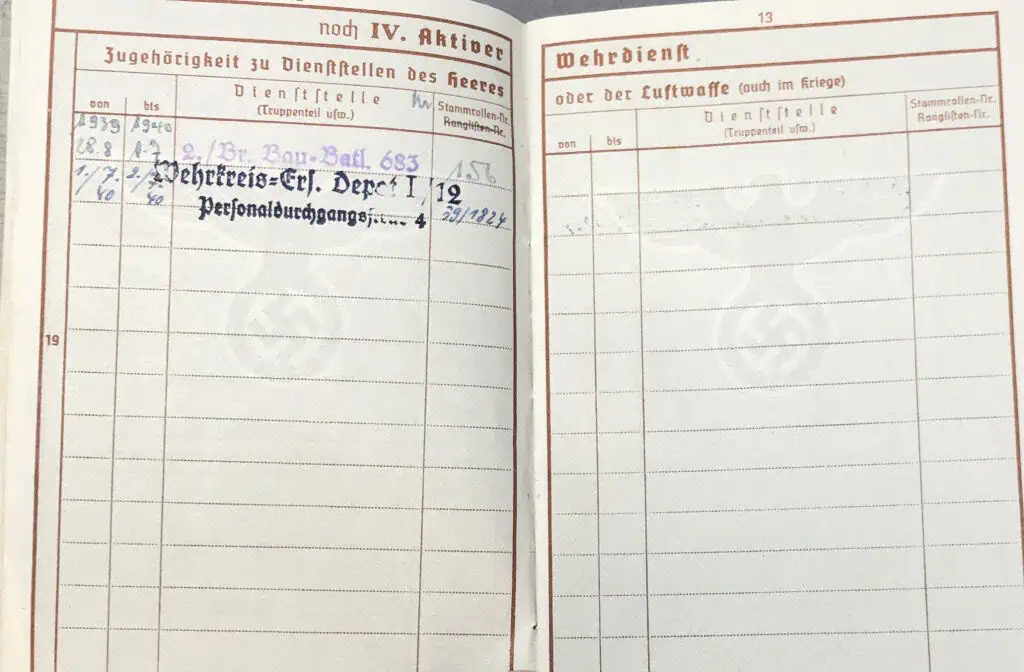 noch IV. Aktiver
Zugehörigkeit zu Dienststellen des Heeres
von
bis
Dienststelle
(Truppenteil usw.)
Kr
Stammrollen-Nr.
Ranglisten-Nr.
1939 1940
28.8 1.7 2./Br. Bau-Batl. 683 156
1./7. 40 2./7. 40 Wehrkreis-Ers. Depot I/12
Personaldurchgangs 4 39/1824
19
13
Wehrdienst
oder der Luftwaffe (auch im Kriege)
von
bis
Dienststelle
(Truppenteil usw.)
Stammrollen-Nr.
Ranglisten-Nr.